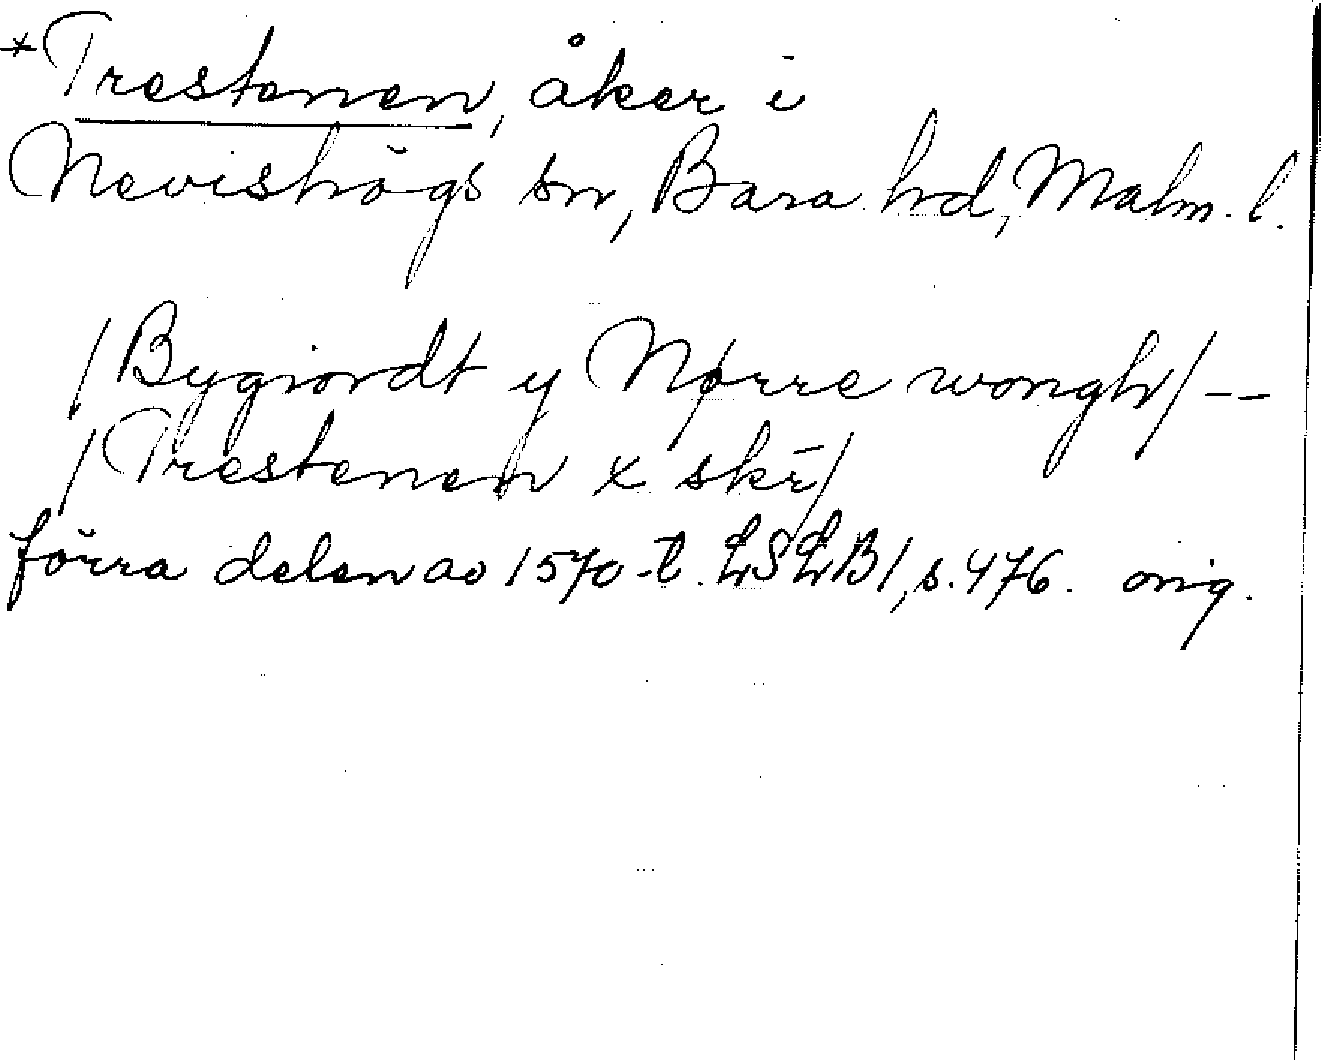 *Trestenen, åker i
Nevishögs sn, Bara hd, Malm. l.
/Bygiordt y Nørre wongh/ --
/Trestenen x skē/
förra delen av 1570-t. LSLB1, s. 476. orig.